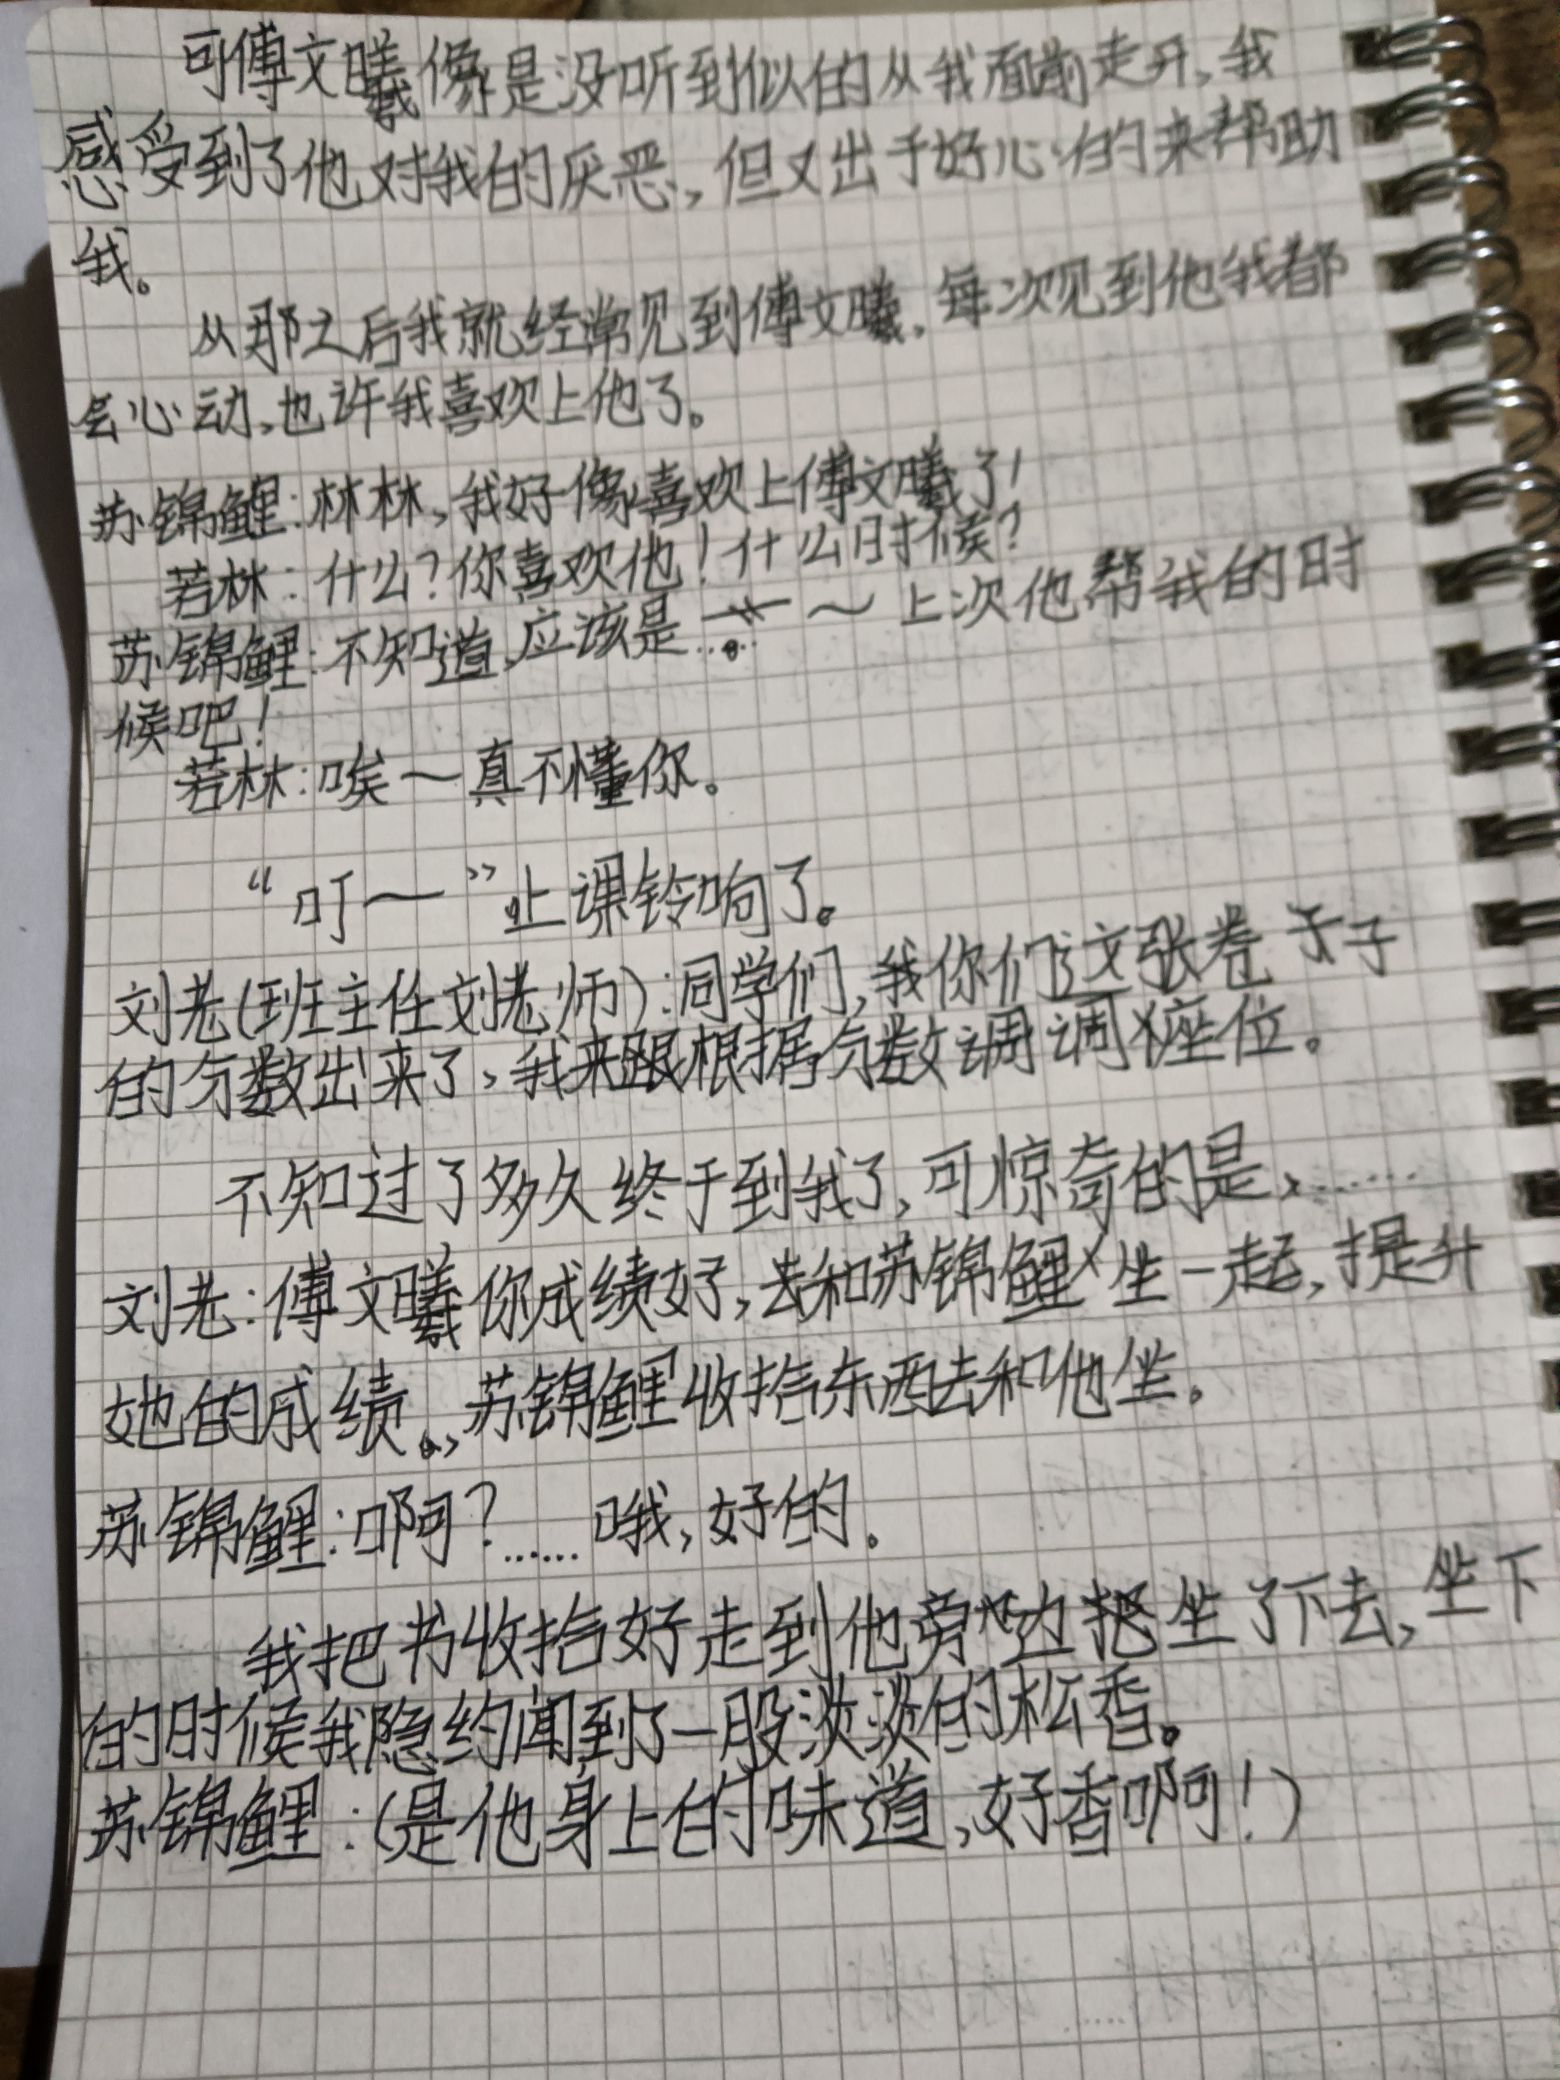 可傅文曦像是没听到似的从我面前走开,我
感受到了他对我的厌恶,但又出于好心的来帮助
我。
从那之后我就经常见到傅文曦,每次见到他我都
会心动,也许我喜欢上他了。
苏锦鲤:林林,我好像喜欢上傅文曦了!
若林:什么?你喜欢他!什么时候?
苏锦鲤:不知道,应该是……~上次他帮我的时
候吧!
若林:唉~真不懂你。
“叮~”上课铃响了。
刘老(班主任刘老师):同学们,我你们这张卷子
的分数出来了,我来跟根据分数调调座位。
不知过了多久终于到我了,可惊奇的是,……
刘老:傅文曦你成绩好,去和苏锦鲤坐一起,提升
她的成绩。,苏锦鲤收拾东西去和他坐。
苏锦鲤:啊?……哦,好的。
我把书收拾好走到他旁边把坐了下去,坐下
的时候我隐约闻到了一股淡淡的松香。
苏锦鲤:(是他身上的味道,好香啊!)